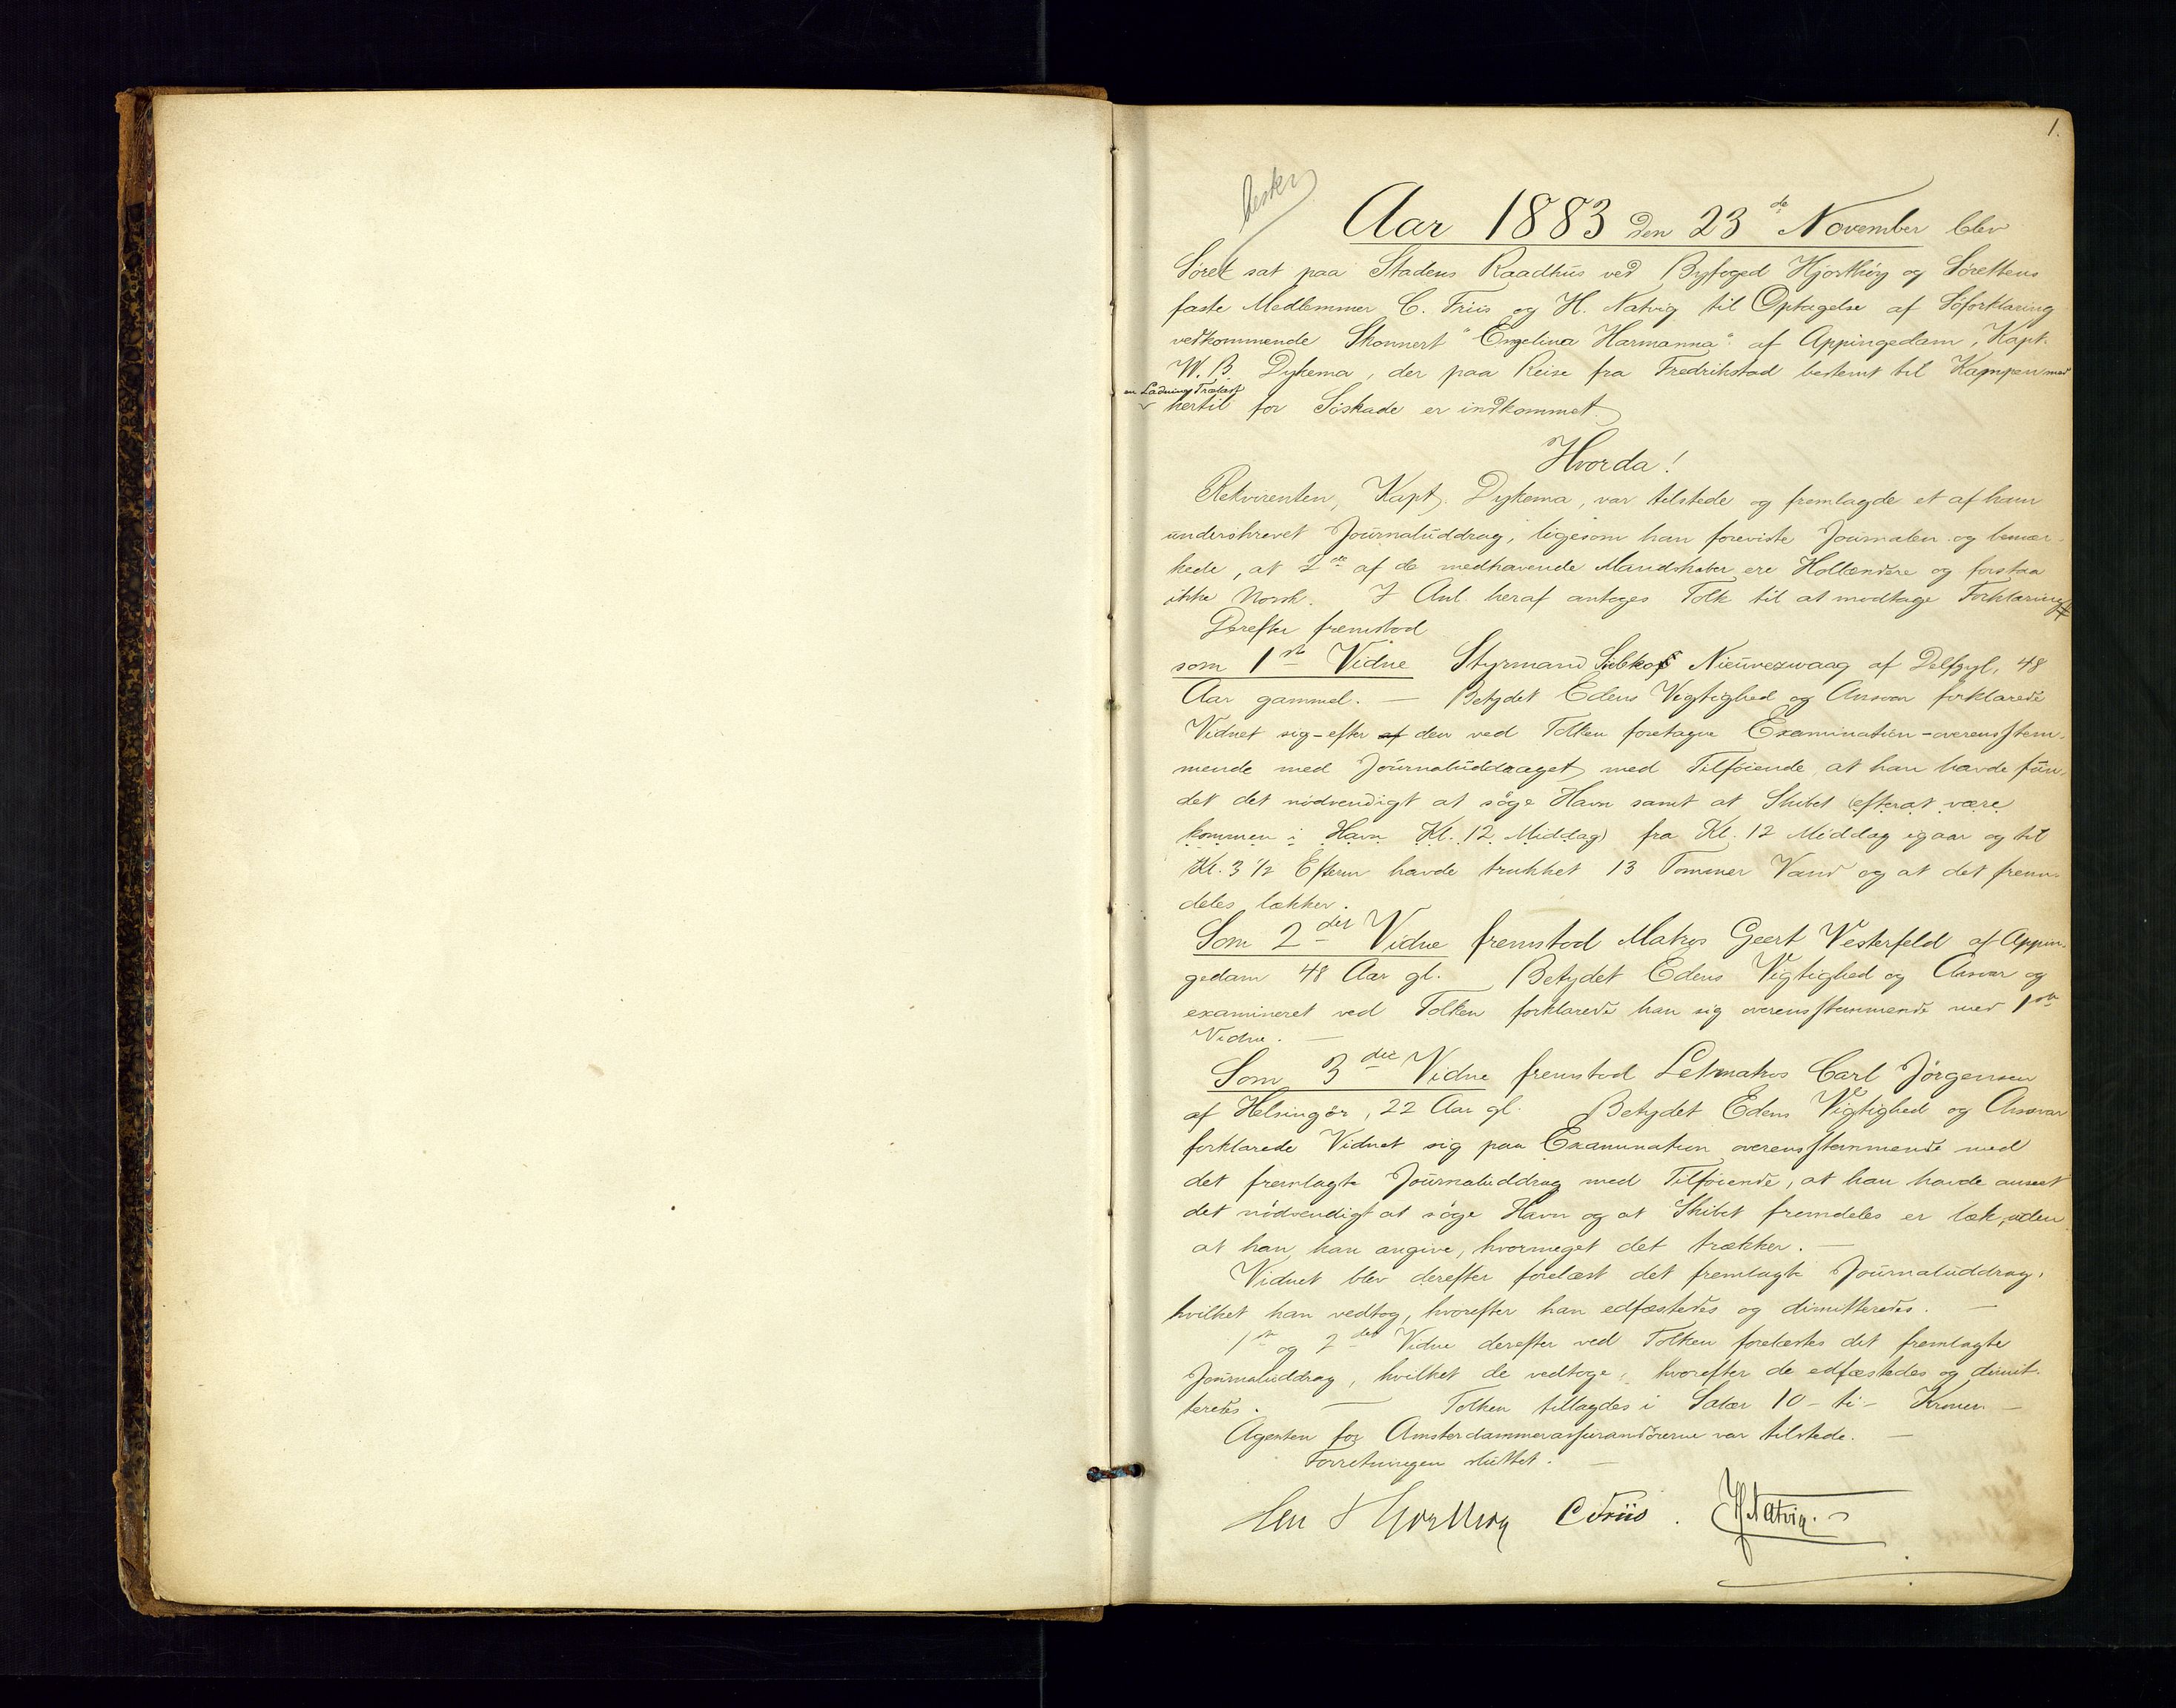 1.
beskr
Aar 1883 den 23de November blev
Söret sat paa Stadens Raadhus ved Byfoged Hjorthöy og Sörettens
faste Medlemmer C. Friis og H. Natvig til Optagelse af Söforklaring
vedkommende Skonnert "Engelina Harmanna" af Appingedam, Kapt.
W. B. Dykema, der paa Reise fra Fredrikstad bestemt til Kampen med
en Ladning Trælast
hertil for Söskade er indkommet.
Hvorda!
Rekvirenten, Kapt. Dykema, var tilstede og fremlagde et af ham
underskrevet Journaluddrag, ligesom han foreviste Journalen og bemær-
kede, at 2de af de medhavende Mandskaber ere Hollændere og forstaa
ikke Norsk. I Anl. heraf antoges Tolk til at modtage Forklaring
Derefter fremstod
som 1ste Vidne Styrmand Siebkof Nieuvezwaag af Delfzyl, 48
Aar gammel. — Betydet Edens Vigtighed og Ansvar forklarede
Vidnet sig - efter af den ved Tolken foretagne Examination - overensstem-
mende med Journaluddraget med Tilföiende at han havde fun-
det det nödvendigt at söge Havn samt at Skibet (efterat være
kommen i Havn Kl. 12 Middag) fra Kl. 12 Middag igaar og til
Kl. 3 1/2 Efterm havde trukket 13 Tommer Vand og at det frem-
deles lækker.
Som 2det Vidne fremstod Matros Geert Vesterfeld af Appin-
gedam 48 Aar gl. Betydet Edens Vigtighed og Ansvar og
examineret ved Tolken forklarede han sig overensstemmende med 1ste
Vidne. —
Som 3die Vidne fremstod Letmatros Carl Jörgensen
af Helsingör, 22 Aar gl. Betydet Edens Vigtighed og Ansvar
forklarede Vidnet sig paa Examination overensstemmende med
det fremlagte Journaluddrag med Tilföiende, at han havde anseet
det nödvendigt at söge Havn og at Skibet fremdeles er læk, uden
at han kan angive, hvormeget det trækker. —
Vidnet blev derefter forelæst det fremlagte Journaluddrag,
hvilket han vedtog, hvorefter han edfæstedes og dimitteredes. —
1ste og 2det Vidne derefter ved Tolken forelæstes det fremlagte
Journaluddrag, hvilket de vedtoge, hvorefter de edfæstedes og dimit-
teredes. — Tolken tillagdes i Salær 10 - ti - Kroner —
Agenten for Amsterdammerassurandörerne var tilstede. —
Forretningen sluttet. —
Hjorthöy C Friis. H Natvig.